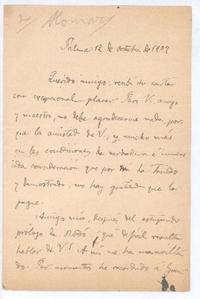 Alomar
Palma 12 de octubre de 1907
Querido amigo: recibí su carta
con excepcional placer. Por V. amigo
y maestro, no debe agradecerme nada por-
que la amistad de V., y mucho más
en las condiciones de verdadera é inmere
cida
que por mí la tendo
y demostrado, no hay gratitud que la
pague.
Amigo mío, después del estupendo
prólogo de Rodó, ¡qué difícil resulta
hablar de V.! A mí me ha maravilla
do. Por momentos he recordado á Gum